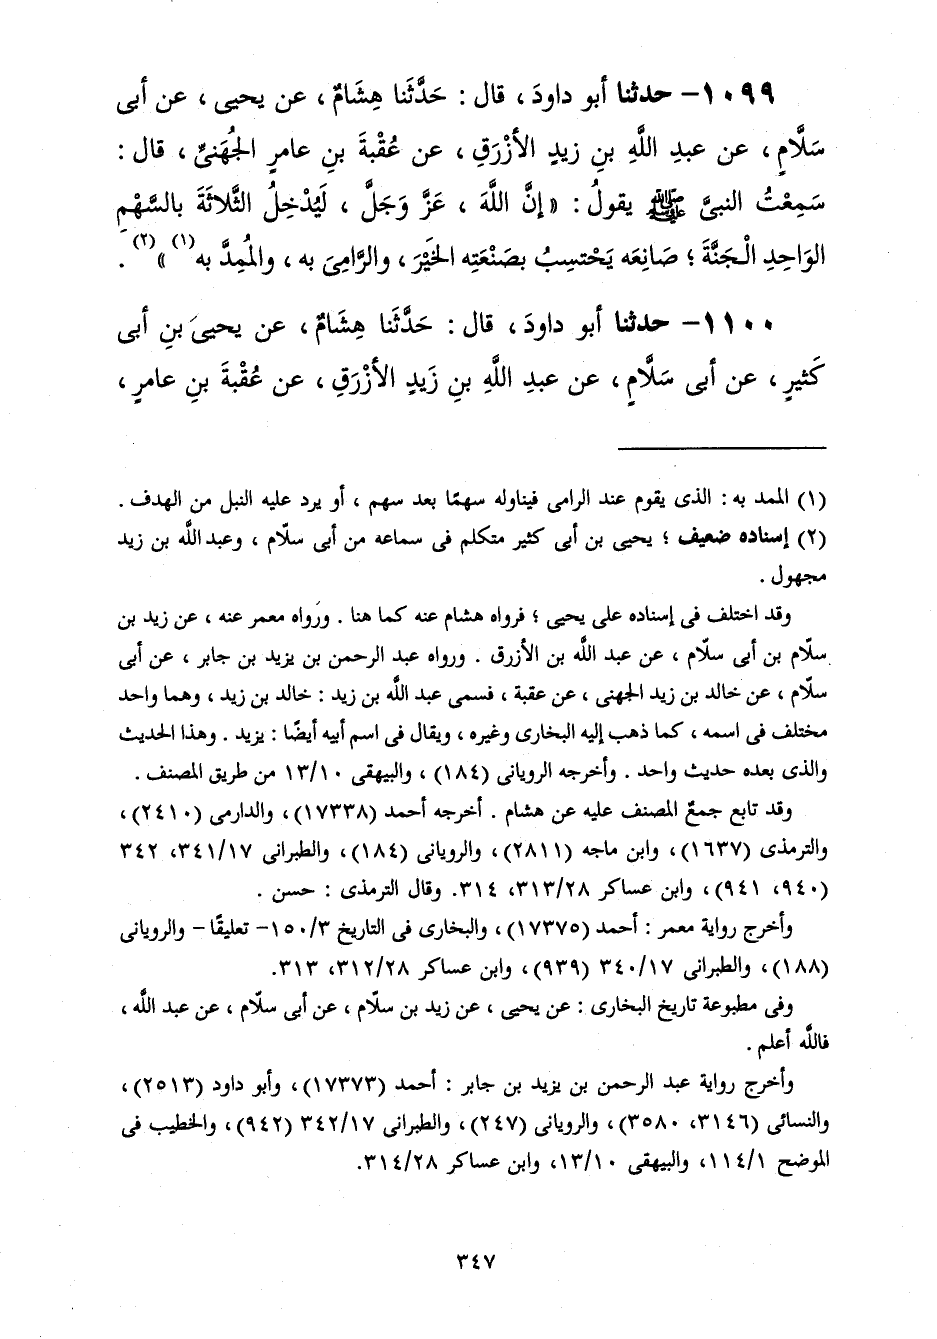 ١٠٩٩- حدثنا أبو داودَ ، قال : حَدَّثَنا هِشَامٌ ، عن يحيى ، عن أبى
سَلَّامٍ ، عن عبدِ اللَّهِ بنِ زيدٍ الأزْرَقِ ، عن عُقْبةَ بنِ عامرٍ الجُهَنىِّ ، قال :
سَمِعْتُ النبىَّ ﷺ يقولُ : « إنَّ اللَّهَ ، عَزَّ وَجَلَّ ، لَيُدْخِلُ الثَّلاثَةَ بالسَّهْمِ
الوَاحِدِ الْجَنَّةَ ؛ صَانِعَه يَحْتسِبُ بصَنْعَتِه الخَيْرَ ، والرَّامِىَ به ، والمُمِدَّ به (١) » (٢) .
١١٠٠- حدثنا أبو داودَ ، قال : حَدَّثَنا هِشَامٌ ، عن يحيىَ بنِ أبى
كَثيرٍ ، عن أبى سَلَّامٍ ، عن عبدِ اللَّهِ بنِ زَيدٍ الأزْرَقِ ، عن عُقْبةَ بنِ عامرٍ ،
(١) الممد به : الذى يقوم عند الرامى فيناوله سهمًا بعد سهم ، أو يرد عليه النبل من الهدف .
(٢) إسناده ضعيف ؛ يحيى بن أبى كثير متكلم فى سماعه من أبى سلّام ، وعبد اللَّه بن زيد
مجهول .
وقد اختلف فى إسناده على يحيى ؛ فرواه هشام عنه كما هنا . ورواه معمر عنه ، عن زيد بن
سلّام بن أبى سلّام ، عن عبد اللَّه بن الأزرق . ورواه عبد الرحمن بن يزيد بن جابر ، عن أبى
سلّام ، عن خالد بن زيد الجهنى ، عن عقبة ، فسمى عبد اللَّه بن زيد : خالد بن زيد ، وهما واحد
مختلف فى اسمه ، كما ذهب إليه البخارى وغيره ، ويقال فى اسم أبيه أيضًا : يزيد . وهذا الحديث
والذى بعده حديث واحد . وأخرجه الرويانى (١٨٤) ، والبيهقى ١٣/١٠ من طريق المصنف .
وقد تابع جمعٌ المصنف عليه عن هشام . أخرجه أحمد (١٧٣٣٨)، والدارمى (٢٤١٠)،
والترمذى (١٦٣٧)، وابن ماجه (٢٨١١)، والرويانى (١٨٤)، والطبرانى ٣٤١/١٧، ٣٤٢
(٩٤٠، ٩٤١)، وابن عساكر ٣١٣/٢٨، ٣١٤. وقال الترمذى : حسن .
وأخرج رواية معمر : أحمد (١٧٣٧٥)، والبخارى فى التاريخ ١٥٠/٣- تعليقًا - والرويانى
(١٨٨)، والطبرانى ٣٤٠/١٧ (٩٣٩)، وابن عساكر ٣١٢/٢٨، ٣١٣.
وفى مطبوعة تاريخ البخارى : عن يحيى ، عن زيد بن سلّام ، عن أبى سلّام ، عن عبد اللَّه ،
فاللَّه أعلم .
وأخرج رواية عبد الرحمن بن يزيد بن جابر : أحمد (١٧٣٧٣)، وأبو داود (٢٥١٣)،
والنسائى (٣١٤٦، ٣٥٨٠)، والرويانى (٢٤٧)، والطبرانى ٣٤٢/١٧ (٩٤٢)، والخطيب فى
الموضح ١١٤/١، والبيهقى ١٣/١٠، وابن عساكر ٣١٤/٢٨.
٣٤٧